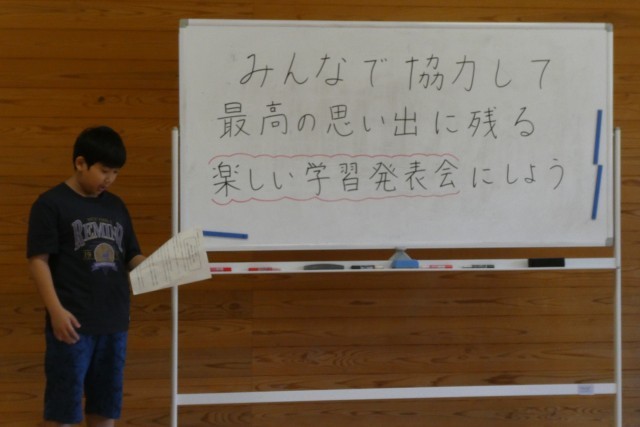 みんなで協力して
最高の思い出に残る
楽しい学習発表会にしよう